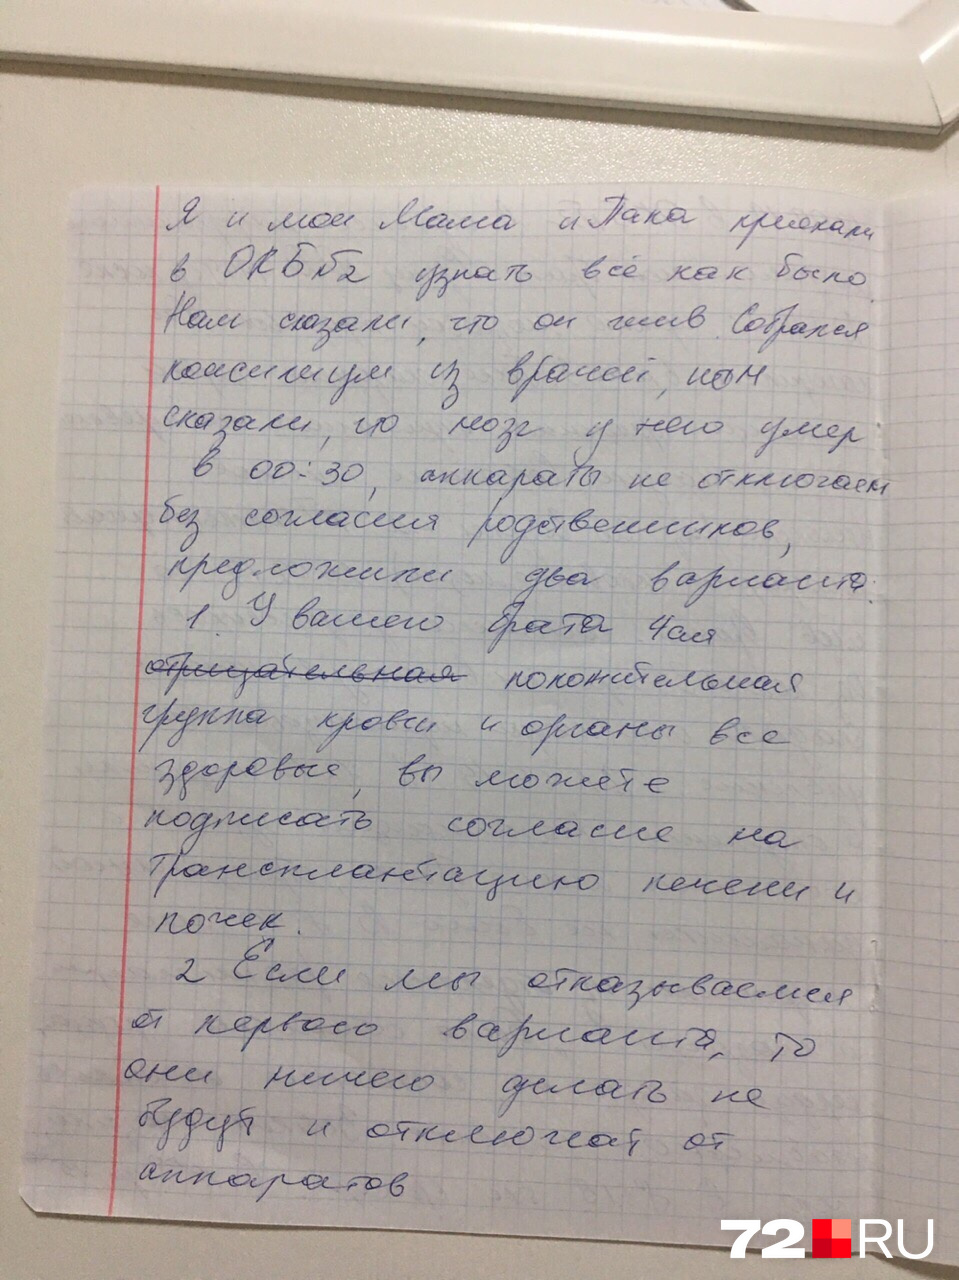 Я и мои Мама и Папа приехали
в ОКБ№2 узнать всё как было.
Нам сказали, что он жив Собрался
консилиум из врачей, и
сказали, что мозг у него умер
в 00:30, аппараты не отключаем
без согласия родственников,
предложили два варианта:
1. У вашего брата 4ая
отрицательная положительная
группа крови и органы все
здоровые, вы можете
подписать согласие на
трансплантацию печени и
почек.
2 Если мы отказываемся
от первого варианта, то
они ничего делать не
будут и отключат от
аппаратов
72.RU